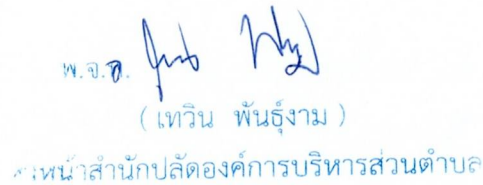 พ.จ.อ.
( เทวิน พันธุ์งาม )
หัวหน้าสำนักปลัดองค์การบริหารส่วนตำบล